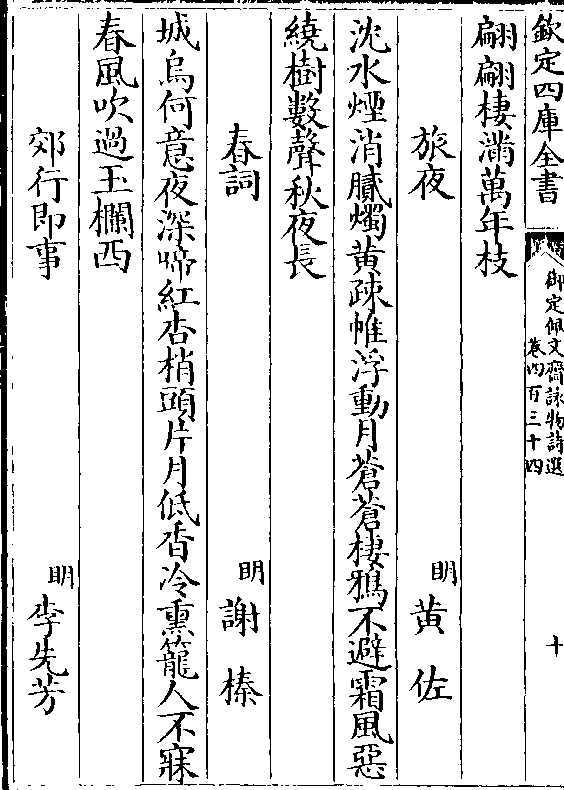 欽定四庫全書
御定佩文齋詠物詩選
卷四百三十四
十
翩翩棲滿萬年枝
旅夜 明 黄佐
沈水煙消臘燭黄疎帷浮動月蒼蒼棲鴉不避霜風惡
繞樹數聲秋夜長
春詞 明 謝榛
城烏何意夜深啼紅杏梢頭片月低香冷熏籠人不寐
春風吹過玉欄西
郊行即事 明 李先芳